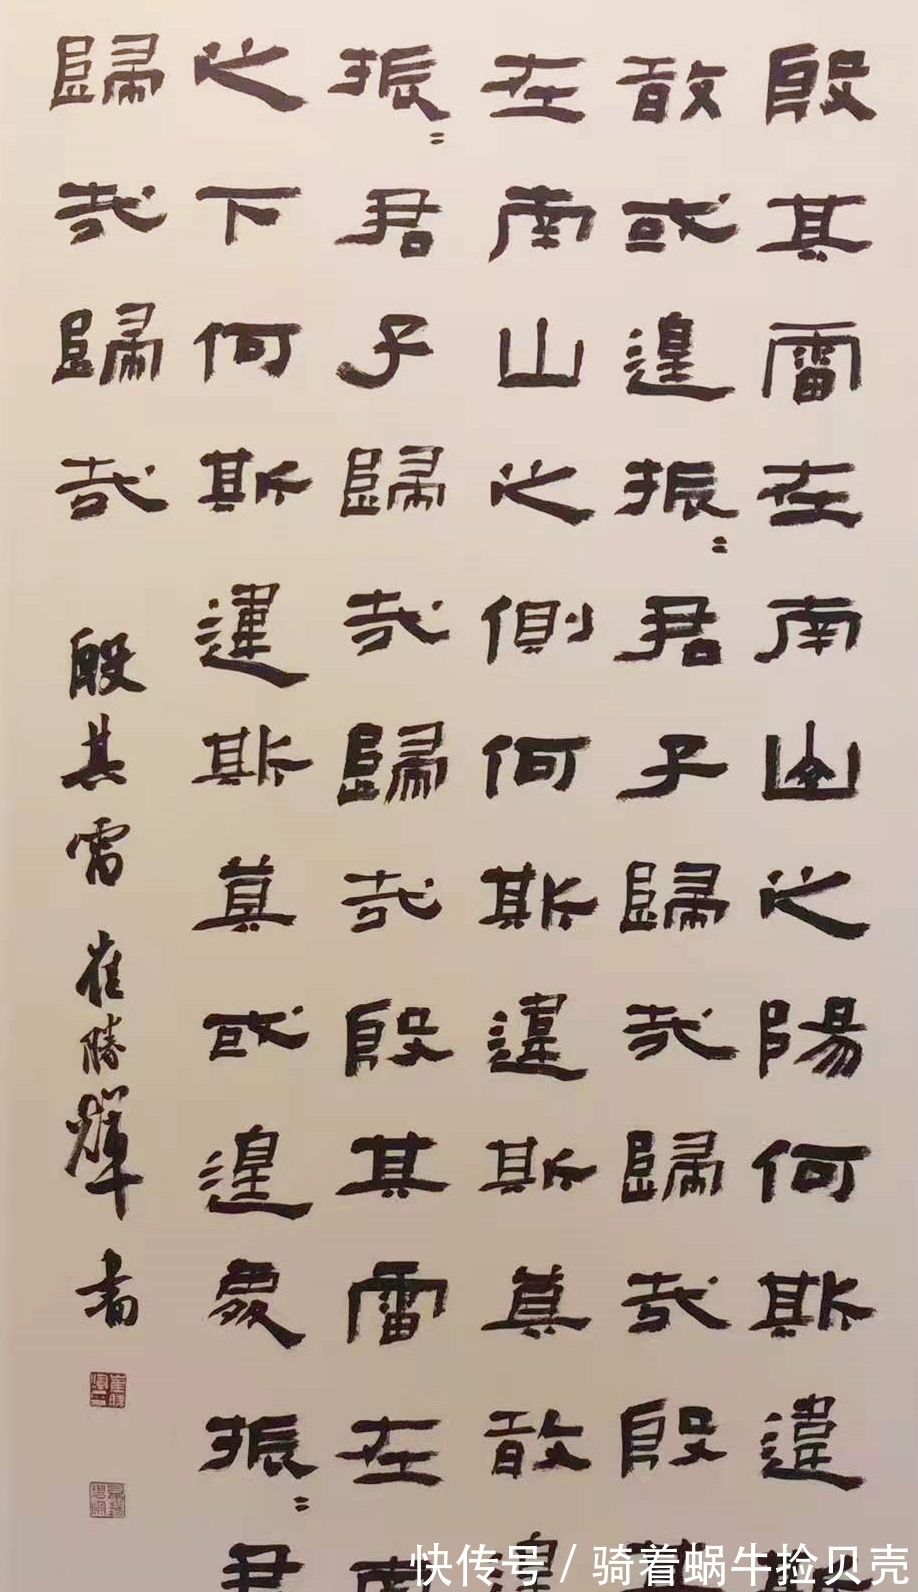 殷其雷在南山之陽何斯違
敢或遑振〻君子歸哉歸哉殷
在南山之側何斯違斯莫敢遑
振〻君子歸哉歸哉殷其雷在南
之下何斯違斯莫或遑處振〻君
歸哉歸哉
殷其雷 崔勝輝書
快传号/骑着蜗牛捡贝壳